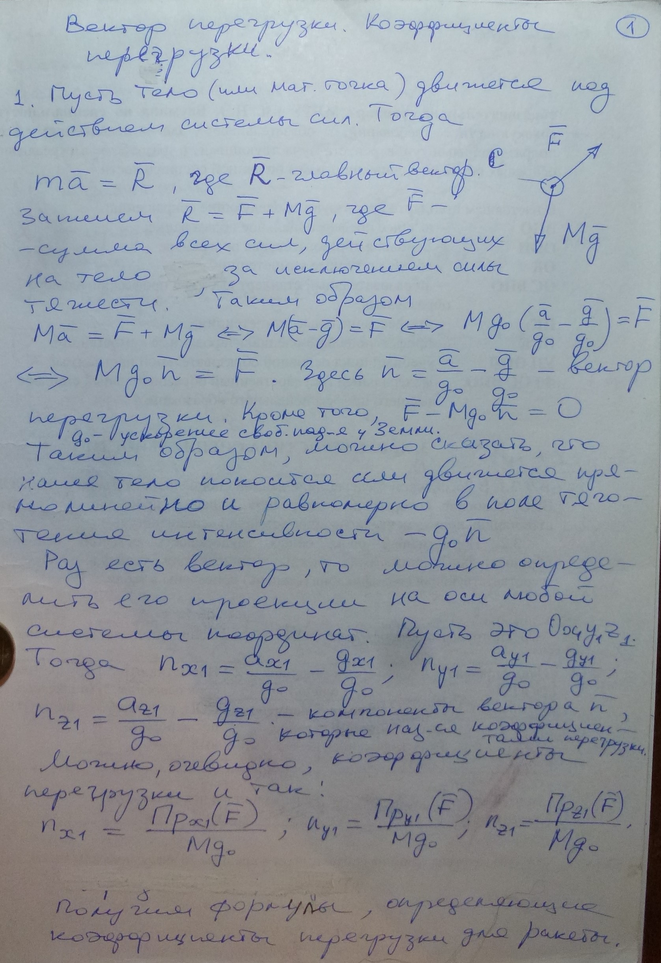 Вектор перегрузки. Коэффициенты
перегрузки.
1
1. Пусть тело (или мат. точка) движется под
действием системы сил. Тогда
F̄
C
Mḡ
mā = R̄, где R̄ - главный вектор.
Запишем R̄ = F̄ + Mḡ, где F̄ -
- сумма всех сил, действующих
на тело, за исключением силы
тяжести. Таким образом
Mā = F̄ + Mḡ <=> M(ā-ḡ) = F̄ <=> Mg₀(ā/g₀ - ḡ/g₀) = F̄
<=> Mg₀n̄ = F̄. Здесь n̄ = ā/g₀ - ḡ/g₀ - вектор
перегрузки. Кроме того, F̄ - Mg₀n̄ = 0
g₀ - ускорение своб. пад-я у Земли.
Таким образом, можно сказать, что
наше тело покоится или движется пря-
молинейно и равномерно в поле тяго-
тения интенсивности -g₀n̄
Раз есть вектор, то можно опреде-
лить его проекции на оси любой
системы координат. Пусть это Ox₁y₁z₁.
Тогда nx1 = ax1/g₀ - gx1/g₀; ny1 = ay1/g₀ - gy1/g₀;
nz1 = az1/g₀ - gz1/g₀ - компоненты вектора n̄,
которые наз-ся коэффициен-
тами перегрузки.
Можно, очевидно, коэффициенты
перегрузки и так:
nx1 = Прx1(F̄)/Mg₀; ny1 = Прy1(F̄)/Mg₀; nz1 = Прz1(F̄)/Mg₀.
Получим формулы, определяющие
коэффициенты перегрузки для ракеты.